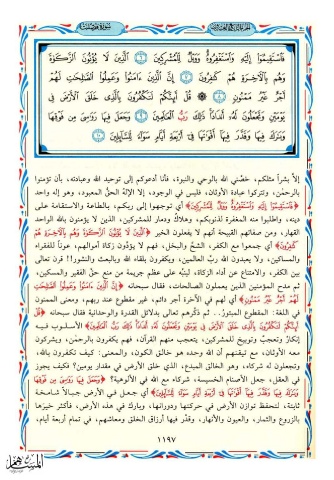 سورة فصلت
فَاسْتَقِيمُوا إِلَيْهِ وَاسْتَغْفِرُوهُ وَوَيْلٌ لِلْمُشْرِكِينَ ۝ الَّذِينَ لَا يُؤْتُونَ الزَّكَاةَ
وَهُمْ بِالْآخِرَةِ هُمْ كَافِرُونَ ۝ إِنَّ الَّذِينَ آمَنُوا وَعَمِلُوا الصَّالِحَاتِ لَهُمْ
أَجْرٌ غَيْرُ مَمْنُونٍ ۝ قُلْ أَئِنَّكُمْ لَتَكْفُرُونَ بِالَّذِي خَلَقَ الْأَرْضَ فِي
يَوْمَيْنِ وَتَجْعَلُونَ لَهُ أَنْدَادًا ذَلِكَ رَبُّ الْعَالَمِينَ ۝ وَجَعَلَ فِيهَا رَوَاسِيَ مِنْ فَوْقِهَا
وَبَارَكَ فِيهَا وَقَدَّرَ فِيهَا أَقْوَاتَهَا فِي أَرْبَعَةِ أَيَّامٍ سَوَاءً لِلسَّائِلِينَ ۝
إلا بشراً مثلكم، خصَّني الله بالوحي والنبوة، فأنا أدعوكم إلى توحيد الله وعبادته، بأن تؤمنوا
بالرحمن، وتتركوا عبادة الأوثان، فليس في الوجود، إلا الإله الحق المعبود، وهو إله واحد
﴿فَاسْتَقِيمُوا إِلَيْهِ وَاسْتَغْفِرُوهُ وَوَيْلٌ لِلْمُشْرِكِينَ﴾ أي توجهوا إلى ربكم، بالطاعة والاستقامة على
دينه، واطلبوا منه المغفرة لذنوبكم، وهلاكٌ ودمار للمشركين، الذين لا يؤمنون بالله الواحد
القهار، ومن صفاتهم القبيحة أنهم لا يفعلون الخير ﴿الَّذِينَ لَا يُؤْتُونَ الزَّكَاةَ وَهُمْ بِالْآخِرَةِ هُمْ
كَافِرُونَ﴾ أي جمعوا مع الكفر، الشحَّ والبخل، فهم لا يؤدّون زكاة أموالهم، عوناً للفقراء
والمساكين، ولا يعبدون الله ربَّ العالمين، ويكفرون بلقاء الله وبالبعث والنشور!! قرن تعالى
بين الكفر، والامتناع عن أداء الزكاة، لينبّه على عظم جريمة من منع حقَّ الفقير والمسكين،
ثم مدح المؤمنين الذين يعملون الصالحات، فقال سبحانه ﴿إِنَّ الَّذِينَ آمَنُوا وَعَمِلُوا الصَّالِحَاتِ
لَهُمْ أَجْرٌ غَيْرُ مَمْنُونٍ﴾ أي لهم في الآخرة أجر دائم، غير مقطوع عند ربهم، ومعنى الممنون
في اللغة: المقطوع المبتور.. ثم ذكّرهم تعالى بدلائل القدرة والوحدانية فقال سبحانه ﴿قُلْ
أَئِنَّكُمْ لَتَكْفُرُونَ بِالَّذِي خَلَقَ الْأَرْضَ فِي يَوْمَيْنِ وَتَجْعَلُونَ لَهُ أَنْدَادًا ذَلِكَ رَبُّ الْعَالَمِينَ﴾ الأسلوب فيه
إنكارٌ وتعجبٌ وتوبيخ للمشركين، يتعجب منهم القرآن، فهم يكفرون بالرحمن، ويشركون
معه الأوثان، مع تيقنهم أن الله وحده هو خالق الكون، والمعنى: كيف تكفرون بالله،
وتجعلون له شركاء، وهو الخالق المبدع، الذي خلق الأرض في مقدار يومين؟ فكيف يجوز
في العقل، جعل الأصنام الخسيسة، شركاء مع الله في الألوهية؟ ﴿وَجَعَلَ فِيهَا رَوَاسِيَ مِنْ فَوْقِهَا
وَبَارَكَ فِيهَا وَقَدَّرَ فِيهَا أَقْوَاتَهَا فِي أَرْبَعَةِ أَيَّامٍ سَوَاءً لِلسَّائِلِينَ﴾ أي جعل في الأرض جبالاً شامخة
ثابتة، لتحفظ توازن الأرض في حركتها ودورانها، وبارك في هذه الأرض، فأكثر خيرها
بالزروع والثمار، والعيون والأنهار، وقدّر فيها أرزاق الخلق ومعاشهم، في تمام أربعة أيام،
١١٩٧